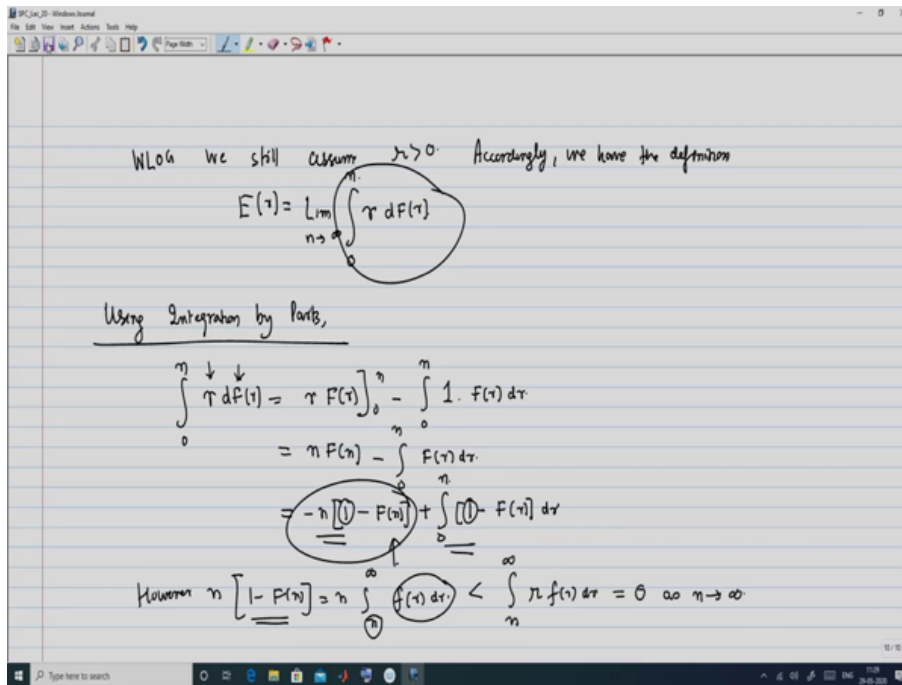 SPC_Lec_20 - Windows Journal
File Edit View Insert Actions Tools Help
Page Width
WLOG we still assume r>0. Accordingly, we have the definition
E(r) = Lim n→∞ ∫₀ⁿ r dF(r)
Using Integration by Parts,
∫₀ⁿ r dF(r) = r F(r)]₀ⁿ - ∫₀ⁿ 1. F(r) dr.
= n F(n) - ∫₀ⁿ F(r) dr.
= -n [1 - F(n)] + ∫₀ⁿ [1 - F(r)] dr
However n [1 - F(n)] = n ∫ₙ^∞ f(r) dr. < ∫ₙ^∞ r f(r) dr = 0 as n→∞.
10 / 10
Type here to search
ENG
11:29
29-05-2020